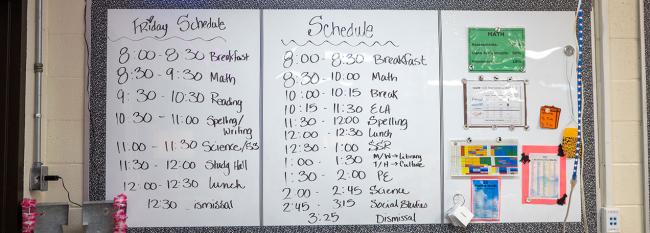 Friday Schedule
8:00-8:30 Breakfast
8:30-9:30 Math
9:30-10:30 Reading
10:30-11:00 Spelling/
Writing
11:00-11:30 Science/SS
11:30-12:00 Study Hall
12:00-12:30 Lunch
12:30 ismissal
Schedule
8:00-8:30 Breakfast
8:30-10:00 Math
10:00-10:15 Break
10:15-11:30 ELA
11:30-12:00 Spelling
12:00-12:30 Lunch
12:30-1:00 SSR
1:00-1:30 M/W→Library
T/H→Culture
1:30-2:00 PE
2:00-2:45 Science
2:45-3:15 Social Studies
3:25 Dismissal
MATH